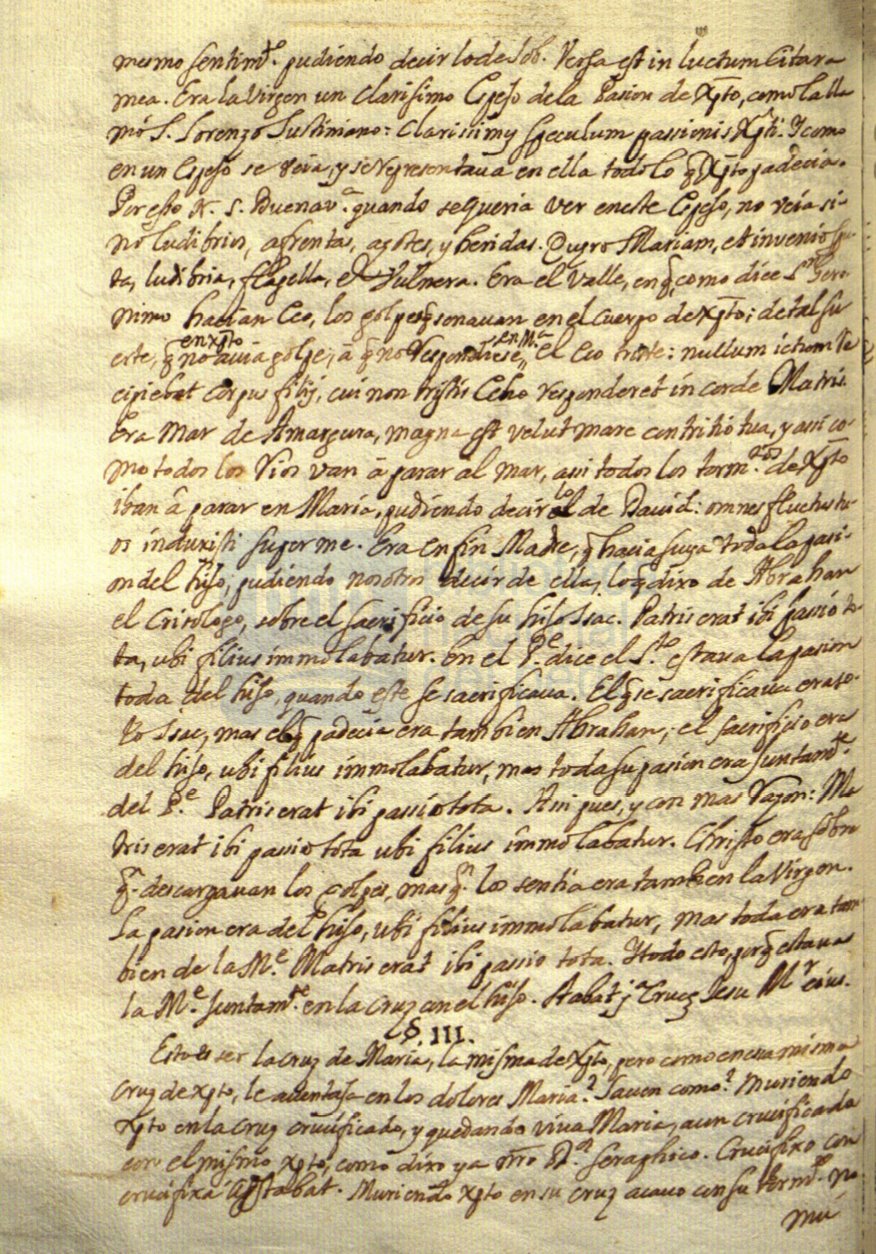 mesmo sentimto. pudiendo decir lo de Job. Versa est in luctum Citara
mea. Era la Virgen un clarisimo Espejo de la Pasion de Xpto, como la lla
mó S. Lorenzo Justiniano: Clarissimum speculum passionis Xpti. Y como
en un Espejo se veia, y se representava en ella todo lo q Xpto padecia.
Por esto N. S. Buenava. quando se queria ver en este Espejo, no veia si-
no ludibrios, afrentas, açotes, y heridas. Quæro Mariam, et invenio spu
ta, ludibria, flagella, et Vulnera. Era el Valle, en q, como dice Sn. Gero
nimo hacian Eco, los golpes q sonavan en el Cuerpo de Xpto; de tal su
erte, q en xpto no avia golpe, á q no respondiese en Ma. el Eco triste: nullum ictum re
cipiebat corpus filij, cui non tristis Echo responderet in corde Matris.
Era Mar de Amargura, magna est velut mare contritio tua, y assi co-
mo todos los rios van á parar al mar, asi todos los tormtos. de Xpto
iban á parar en Maria, pudiendo decir lo de David: omnes fluctus tu-
os induxisti super me. Era en fin Madre, q hacia suya toda la pasi-
on del hijo, pudiendo nosotros decir de ella, lo q dixo de Abrahan
el Crisologo, sobre el sacrificio de su hijo Isac. Patris erat ibi passio to-
ta, ubi filius immolabatur. En el Pe. dice el Sto. estava la pasion
toda del hijo, quando este se sacrificava. El q se sacrificava era so-
lo Isac, mas el q padecia era tambien Abrahan, el sacrificio era
del hijo, ubi filius immolabatur, mas toda su pasion era juntamte.
del Pe. Patris erat ibi passio tota. Asi pues, y con mas razon: Ma
tris erat ibi passio tota ubi filius immolabatur. Christo era sobre
qn. descargavan los golpes, mas qn. los sentia era tambien la Virgen.
La pasion era del hijo, ubi filius immolabatur, mas toda era tam
bien de la Me. Matris erat ibi passio tota. Y todo esto, porq estava
la Me. juntamte. en la Cruz con el hijo. Stabat ja. Cruce Jesu Mr. eius.
§. III.
Esto es ser la cruz de Maria, la misma de Xpto, pero como en esa misma
cruz de xpto, le aventaja en los dolores Maria? Saven como? Muriendo
xpto en la cruz crucificado, y quedando viva Maria, aun crucificada
con el mismo xpto, como dixo ya nro Dor. Seraphico. Crucifixo con
crucifixa astabat. Muriendo xpto en su cruz acavo con su tormto. no
mu-